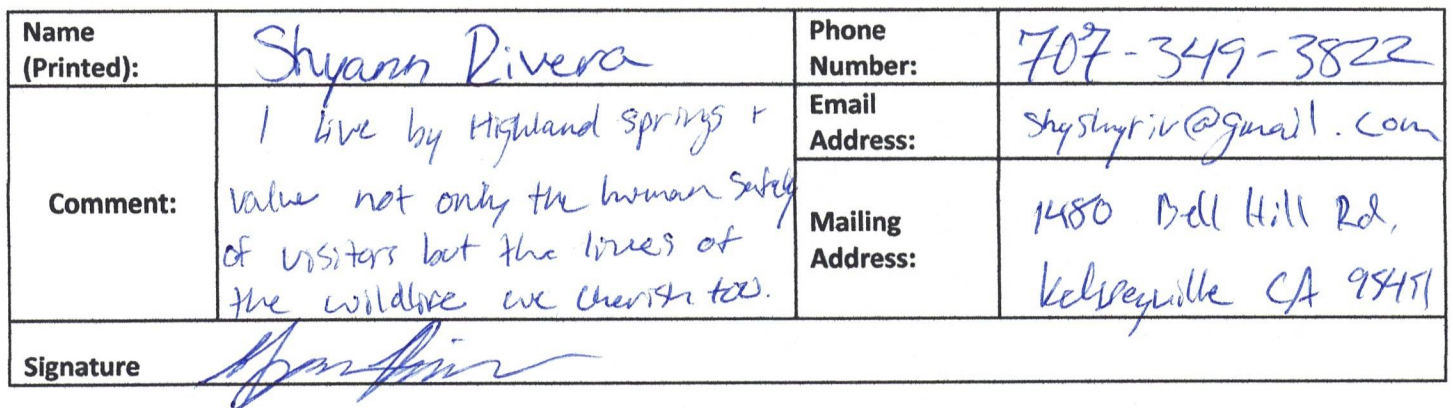 Name
(Printed):
Shyann Rivera
Phone
Number:
707-349-3822
Comment:
I live by Highland springs +
value not only the human safety
of visitors but the lives of
the wildlife we cherish too.
Email
Address:
shyshyriv@gmail.com
Mailing
Address:
1480 Bell Hill Rd,
Kelseyville CA 95451
Signature